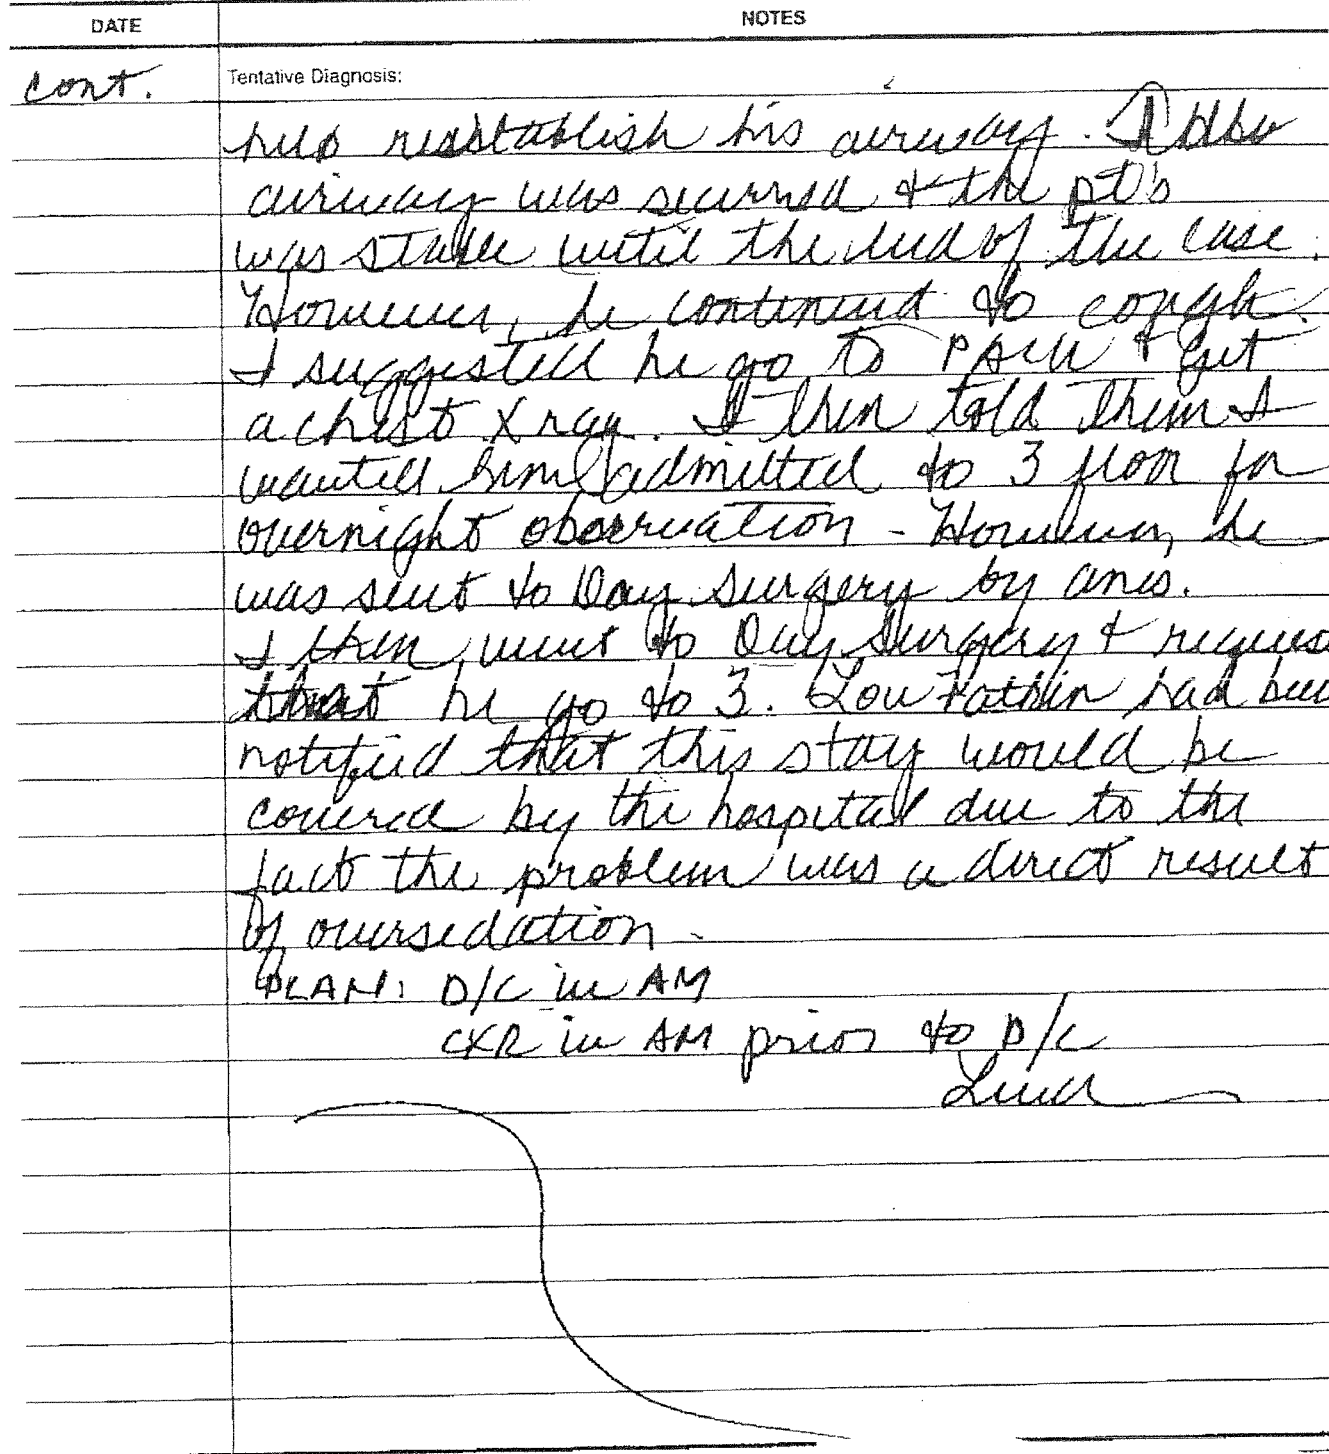 DATE NOTES
cont. Tentative Diagnosis:
help reestablish his airway. The
airway was secured & the pt's
was stable until the end of the case.
However, he continued to cough.
I suggested he go to PACU & get
a chest X ray. I then told them I
wanted him admitted to 3 floor for
overnight observation - However, he
was sent to Day Surgery by anes.
I then went to Day Surgery &
that he go to 3. Lou had been
notified that this stay would be
covered by the hospital due to the
fact the problem was a direct result
of oversedation -
PLAN: D/C in AM
CXR in AM prior to D/C